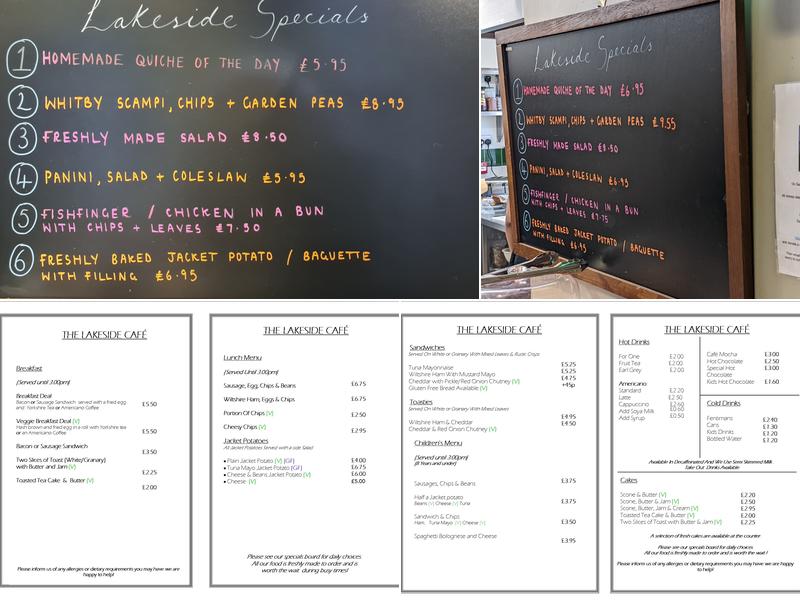 Lakeside Specials
1 HOMEMADE QUICHE OF THE DAY £5.95
2 WHITBY SCAMPI, CHIPS + GARDEN PEAS £8.95
3 FRESHLY MADE SALAD £8.50
4 PANINI, SALAD + COLESLAW £5.95
5 FISHFINGER / CHICKEN IN A BUN
WITH CHIPS + LEAVES £7.50
6 FRESHLY BAKED JACKET POTATO / BAGUETTE
WITH FILLING £6.95
Lakeside Specials
1 HOMEMADE QUICHE OF THE DAY £6.95
2 WHITBY SCAMPI, CHIPS + GARDEN PEAS £9.55
3 FRESHLY MADE SALAD £8.50
4 PANINI, SALAD + COLESLAW £6.95
5 FISHFINGER / CHICKEN IN A BUN
WITH CHIPS + LEAVES £7.75
6 FRESHLY BAKED JACKET POTATO / BAGUETTE
WITH FILLING £6.95
THE LAKESIDE CAFÉ
Breakfast
(Served until 3.00pm)
Breakfast Deal
Bacon or Sausage Sandwich served with a fried egg
and Yorkshire Tea or Americano Coffee £5.50
Veggie Breakfast Deal (V)
Hash brown and fried egg in a roll with Yorkshire tea
or an Americano Coffee £5.50
Bacon or Sausage Sandwich
£3.50
Two Slices of Toast (White/Granary)
with Butter and Jam (V)
£2.25
Toasted Tea Cake & Butter (V)
£2.00
Please inform us of any allergies or dietary requirements you may have we are
happy to help!
THE LAKESIDE CAFÉ
Lunch Menu
(Served Until 3.00pm)
Sausage, Egg, Chips & Beans £6.75
Wiltshire Ham, Eggs & Chips £6.75
Portion Of Chips (V) £2.50
Cheesy Chips (V) £2.95
Jacket Potatoes
All Jacket Potatoes Served with a side Salad
• Plain Jacket Potato (V) (GF) £4.00
• Tuna Mayo Jacket Potato (GF) £6.75
• Cheese & Beans Jacket Potato (V) £6.00
• Cheese (V) £5.00
Please see our specials board for daily choices
All our food is freshly made to order and is
worth the wait during busy times!
THE LAKESIDE CAFÉ
Sandwiches
Served On White or Granary With Mixed Leaves & Rustic Crisps
Tuna Mayonnaise £5.25
Wiltshire Ham With Mustard Mayo £5.25
Cheddar with Pickle/Red Onion Chutney (V) £4.75
Gluten Free Bread Available (V) +45p
Toasties
Served On White or Granary With Mixed Leaves
Wiltshire Ham & Cheddar £4.95
Cheddar & Red Onion Chutney (V) £4.50
Children's Menu
(Served until 3.00pm)
(8 Years and under)
Sausages, Chips & Beans £3.75
Half a Jacket potato £3.75
Beans (V) Cheese (V) Tuna
Sandwich & Chips
Ham, Tuna Mayo (V) Cheese (V) £3.50
Spaghetti Bolognese and Cheese
£3.95
THE LAKESIDE CAFÉ
Hot Drinks
For One £2.00
Fruit Tea £2.00
Earl Grey £2.00
Americano
Standard £2.20
Latte £2.50
Cappuccino £2.60
Add Soya Milk £0.60
Add Syrup £0.50
Café Mocha £3.00
Hot Chocolate £2.50
Special Hot £3.00
Chocolate
Kids Hot Chocolate £1.60
Cold Drinks
Fentimans £2.40
Cans £1.30
Kids Drinks £1.20
Bottled Water £1.20
Available In Decaffeinated And We Use Semi Skimmed Milk
Take Out Drinks Available
Cakes
Scone & Butter (V) £2.20
Scone, Butter & Jam (V) £2.50
Scone, Butter, Jam & Cream (V) £2.95
Toasted Tea Cake & Butter (V) £2.00
Two Slices of Toast with Butter & Jam (V) £2.25
A selection of fresh cakes are available at the counter
Please see our specials board for daily choices
All our food is freshly made to order and is worth the wait !
Please inform us of any allergies or dietary requirements you may have we are happy to
help!